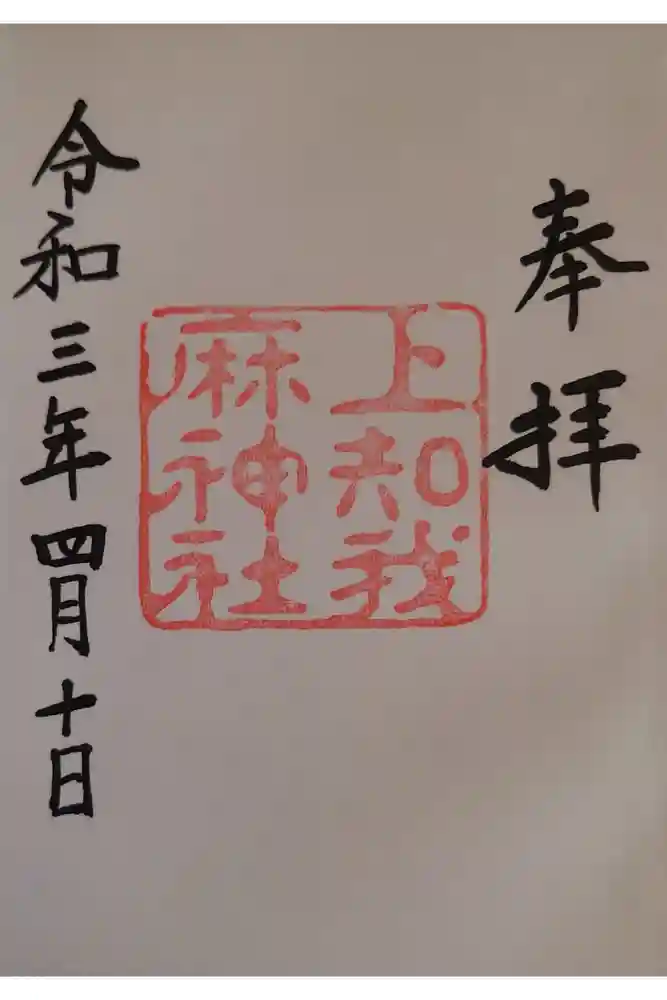 奉拝
上知我
麻神社
令和三年四月十日